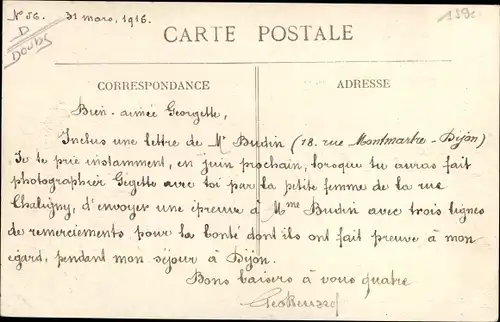 N° 56. 31 mars, 1916.
D
Doubs
CARTE POSTALE
CORRESPONDANCE
ADRESSE
Bien-aimée Georgette,
Inclus une lettre de Mr Budin (18. rue Montmartre - Dijon)
Je te prie instamment, en juin prochain, lorsque tu auras fait
photographier Gégette avec toi par la petite femme de la rue
Chaligny, d'envoyer une épreuve à Mme Budin avec trois lignes
de remerciements pour la bonté dont ils ont fait preuve à mon
égard, pendant mon séjour à Dijon.
Bons baisers à vous quatre